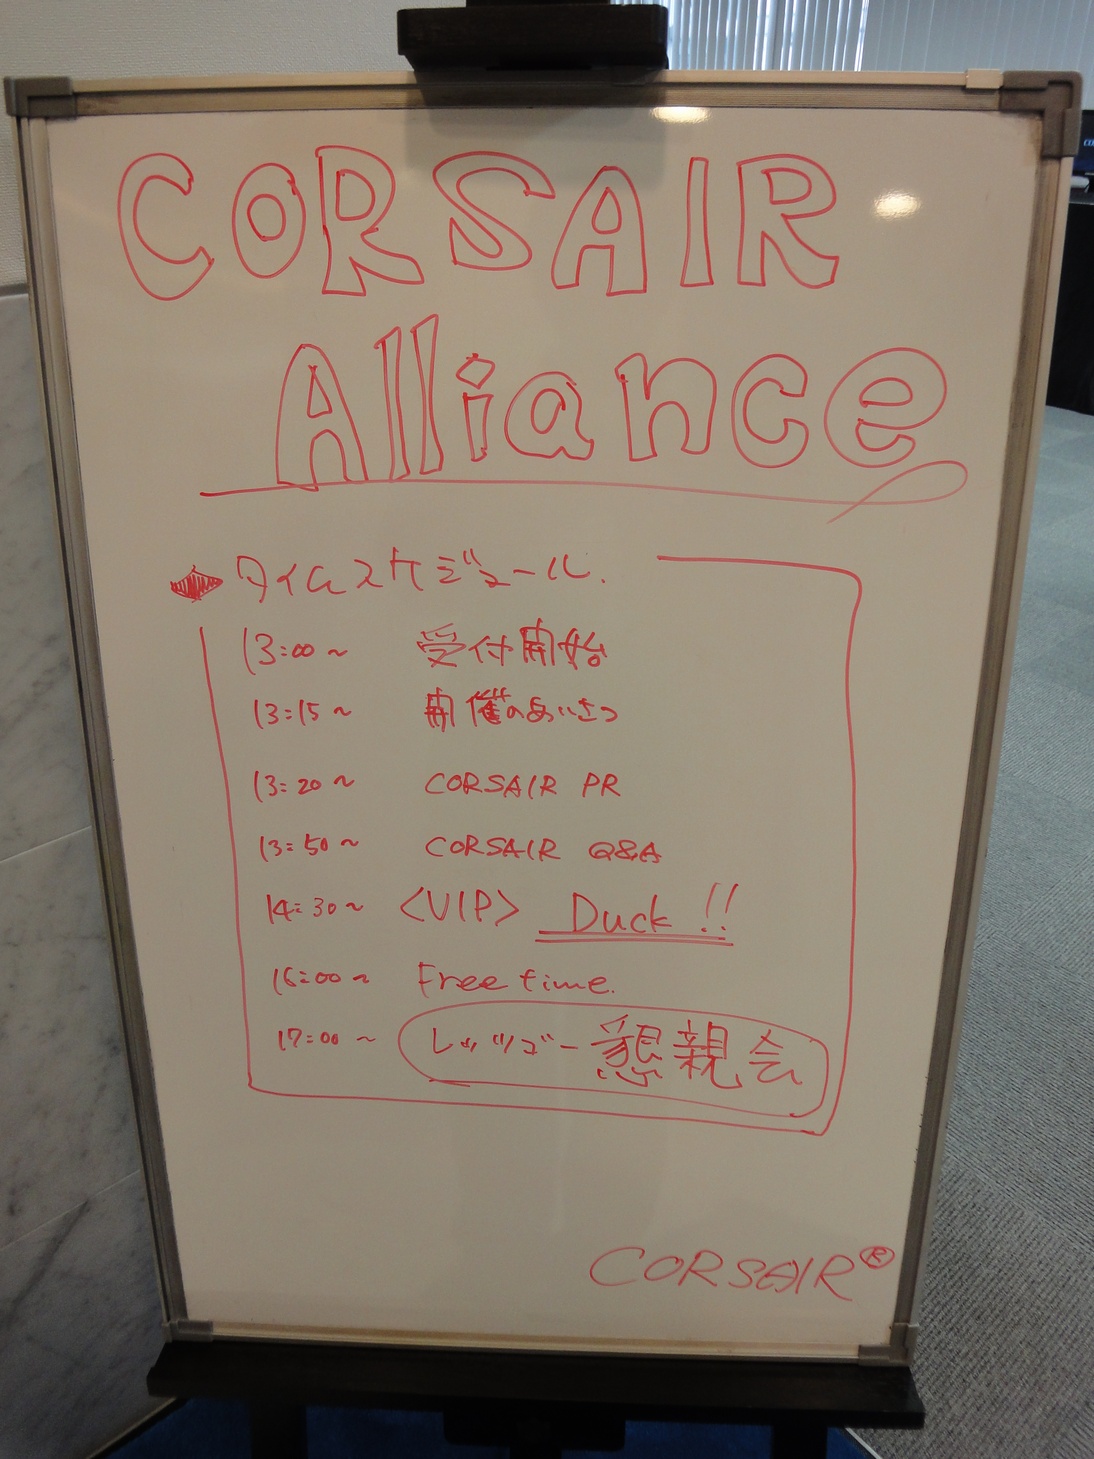 CORSAIR
Alliance
◆ タイムスケジュール.
13:00 ~ 受付開始
13:15 ~ 開催のあいさつ
13:20 ~ CORSAIR PR
13:50 ~ CORSAIR Q&A
14:30 ~ <VIP> Duck !!
16:00 ~ Free time.
17:00 ~ レッツゴー懇親会
CORSAIR®